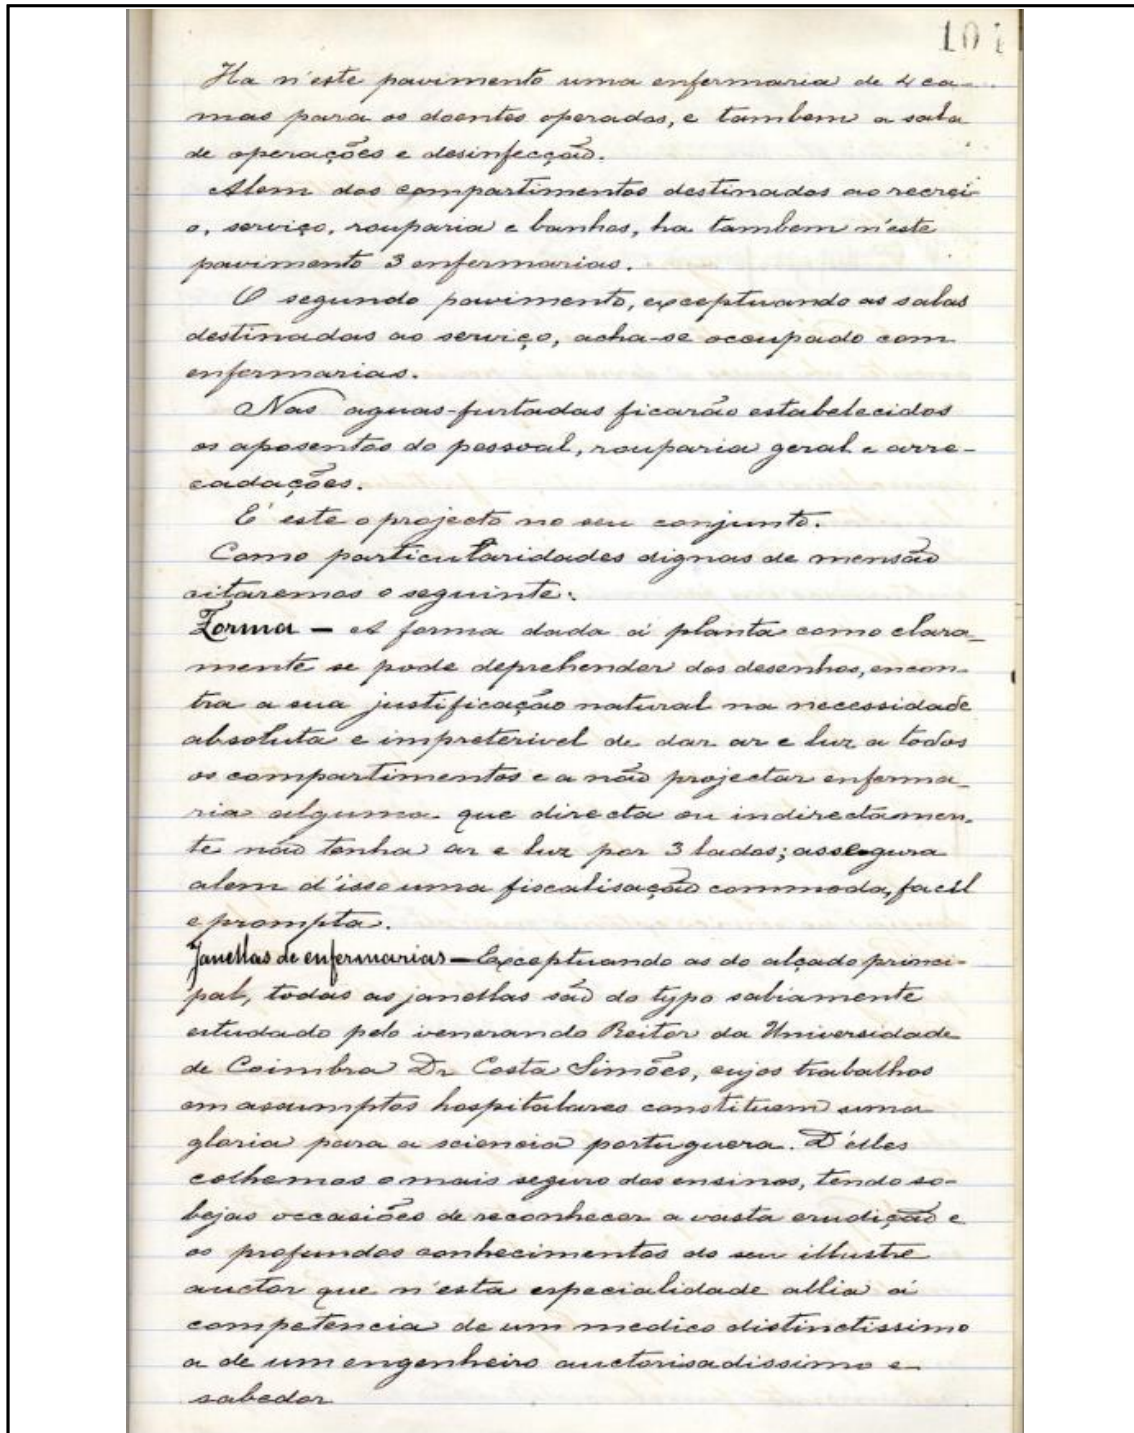 101
Ha n'este pavimento uma enfermaria de 4 ca-
mas para os doentes operados, e tambem a sala
de operações e desinfecção.
Alem dos compartimentos destinados ao recrei
o, serviço, rouparia e banhos, ha tambem n'este
pavimento 3 enfermarias.
O segundo pavimento, exceptuando as salas
destinadas ao serviço, acha-se occupado com
enfermarias.
Nas aguas-furtadas ficarão estabelecidos
os aposentos do pessoal, rouparia geral e arre-
cadações.
E' este o projecto no seu conjunto.
Como particularidades dignas de mensão
citaremos o seguinte:
Forma — A forma dada á planta como clara-
mente se pode deprehender dos desenhos, encon-
tra a sua justificação natural na necessidade
absoluta e impreterivel de dar ar e luz a todos
os compartimentos e a não projectar enferma-
ria alguma que directa ou indirectamen-
te não tenha ar e luz por 3 lados; assegura
alem d'isso uma fiscalisação commoda, facil
e prompta.
Janellas de enfermarias — Exceptuando as do alçado princi-
pal, todas as janellas são do typo sabiamente
estudado pelo venerando Reitor da Universidade
de Coimbra Dr Costa Simões, cujos trabalhos
em assumptos hospitalares constituem uma
gloria para a sciencia portugueza. D'elles
colhemos o mais seguro dos ensinos, tendo so-
bejas occasiões de reconhecer a vasta erudição e
os profundos conhecimentos do seu illustre
auctor que n'esta especialidade allia á
competencia de um medico distinctissimo
a de um engenheiro auctorisadissimo e
sabedor